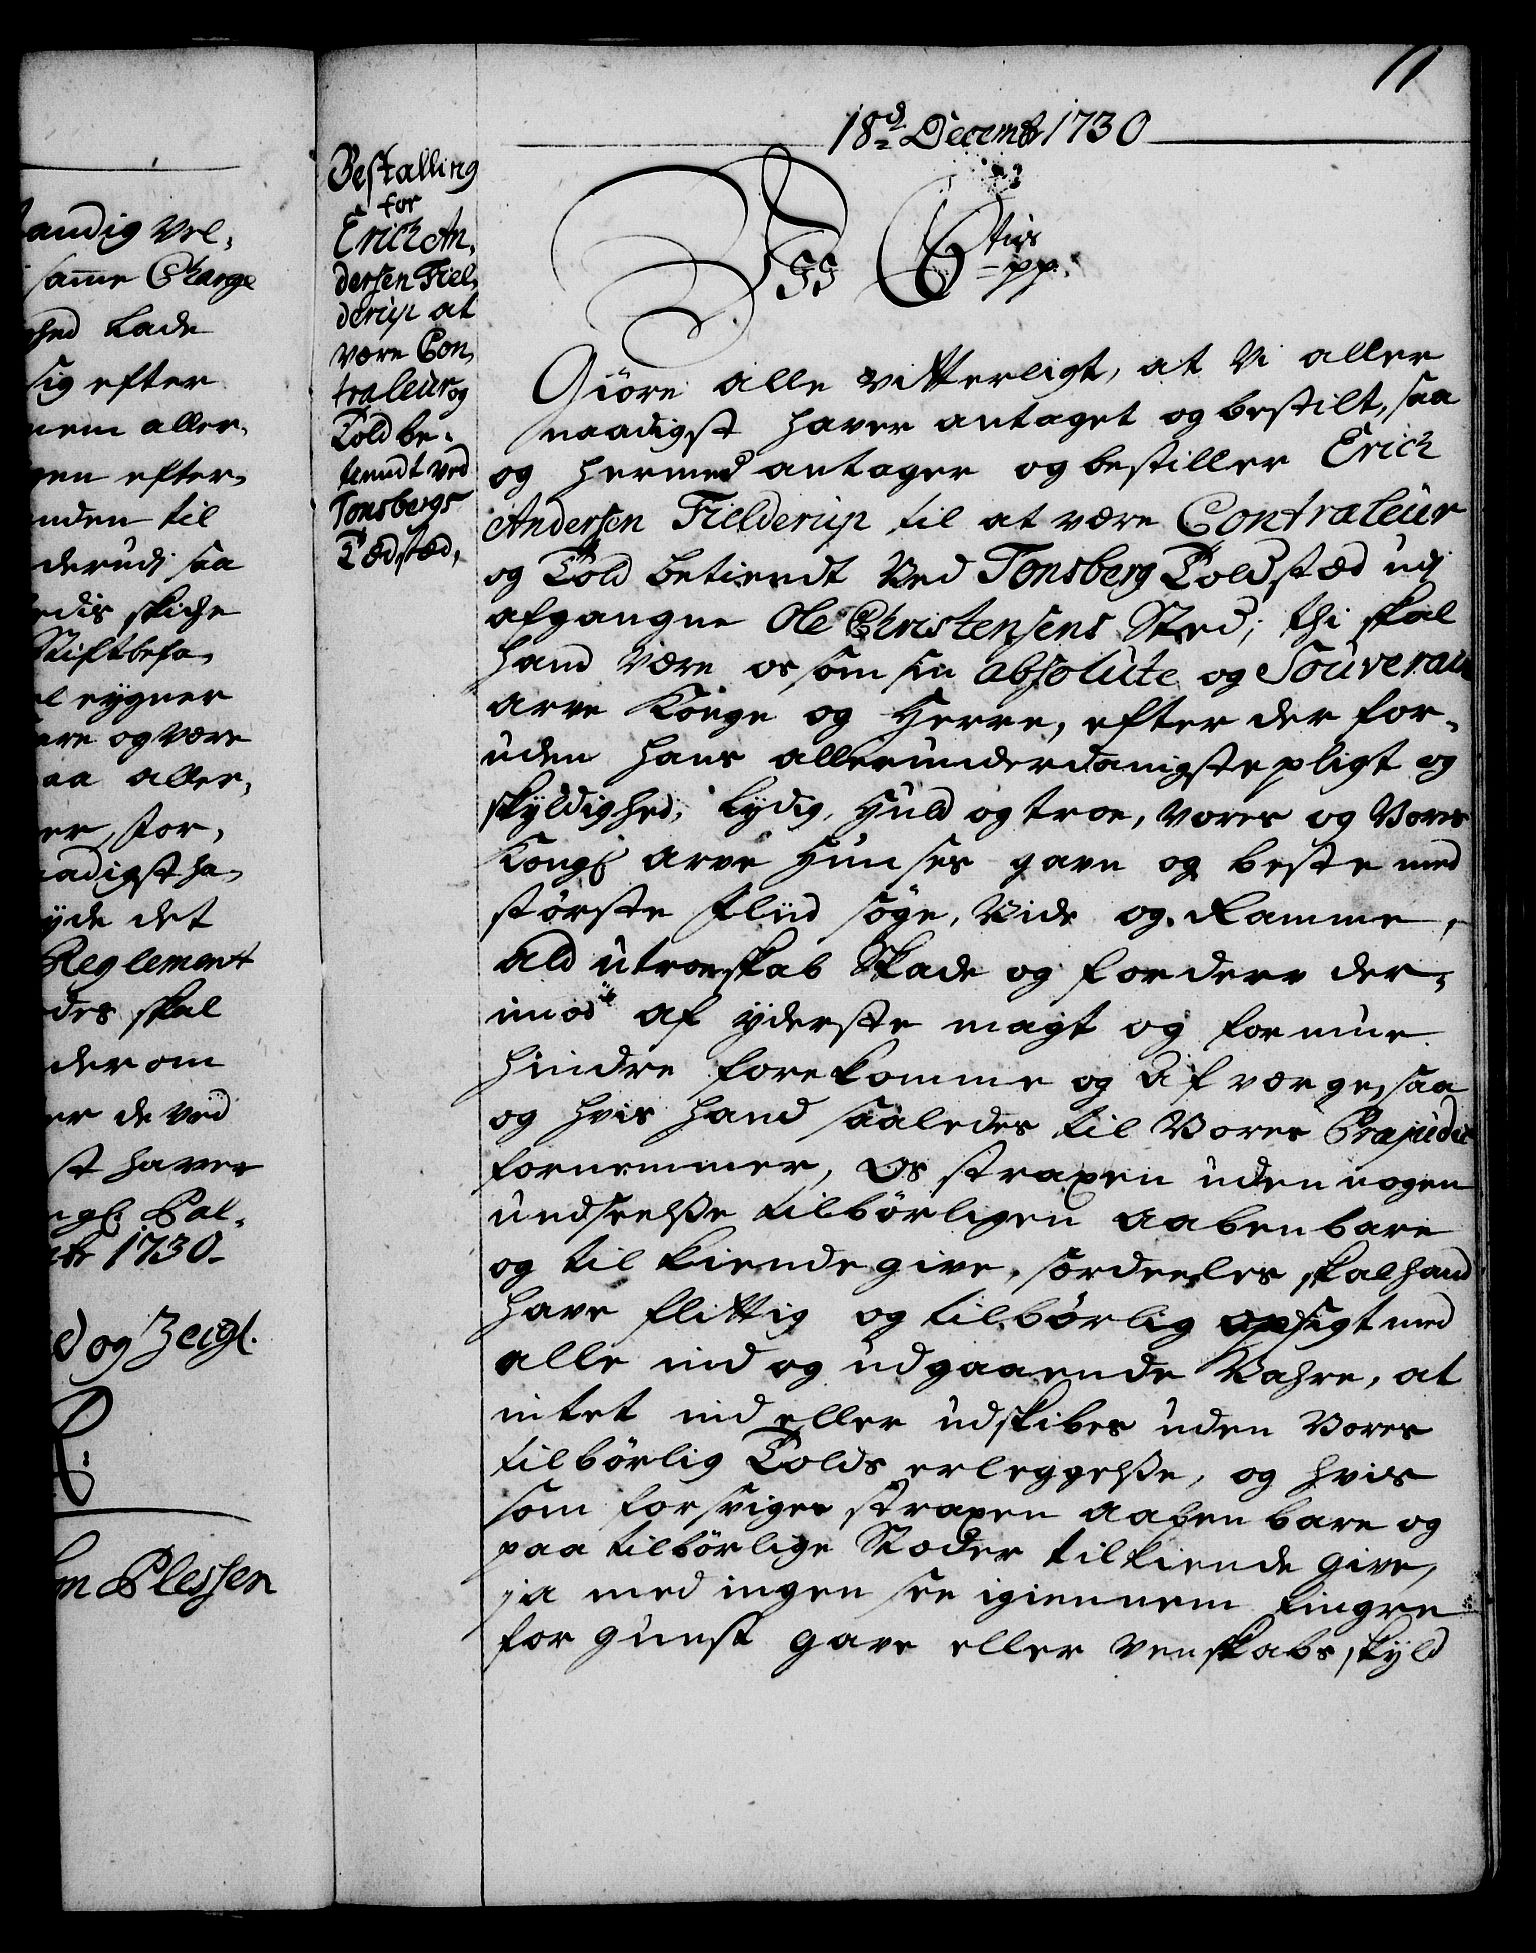 11
18d. Decembr 1730
Bestalling
for
Erich An-
dersen Fiel-
derup at
være Con-
traleur og
Told be-
tiendt ved
Tonsbergs
Toldsted,
Wii C 6tus
pp.
Giöre alle vitterligt, at Vi aller
naadigst haver antaget og bestilt, saa
og hermed antager og bestiller Erich
Andersen Fielderup til at være Contraleur
og Told betiendt ved Tonsberg Toldsted udj
afgangne Ole Christensens Sted; thi skal
hand være os som sin absolute og Souverain
arve Konge og Herre, efter der for-
uden hans allerunderdanigste pligt og
skyldighed, lydig, huld og troe, vores og Vores
Kongl. arve Huuses gavn og beste med
störste fliid söge, Vide og Ramme,
ald utroeskab Skade og forderv der-
imod af yderste magt og formue
hindre forekomme og afværge, saa
og hvis hand saaledes til Vores Præjudice
fornemmer, Os straxen uden nogen
undseelße tilbörligen aabenbare
og til kiende give, særdeeles skal hand
have flittig og tilbörlig opsigt med
alle ind og udgaaende Vahre, at
intet ind eller udskibes uden Vores
tilbörlig Tolds erleggelße, og hvis
som forsviges straxen aabenbare og
paa tilbörlige Stæder tilkiende give,
ja med ingen see igiennem fingre
for gunst gave eller venskabs skyld
andig vel-
samme Charge
hed lade
sig efter
nem aller-
gen efter-
nden til
derudj saa
edis skiche
Stiftbefa-
el eygner
are og være
aa aller-
er, for-
aadigst ha-
yde det
Reglement
des skal
der om
er de ved
st haver
ngl. Pal-
br 1730.
d og Zeigl.
R.
on Plessen